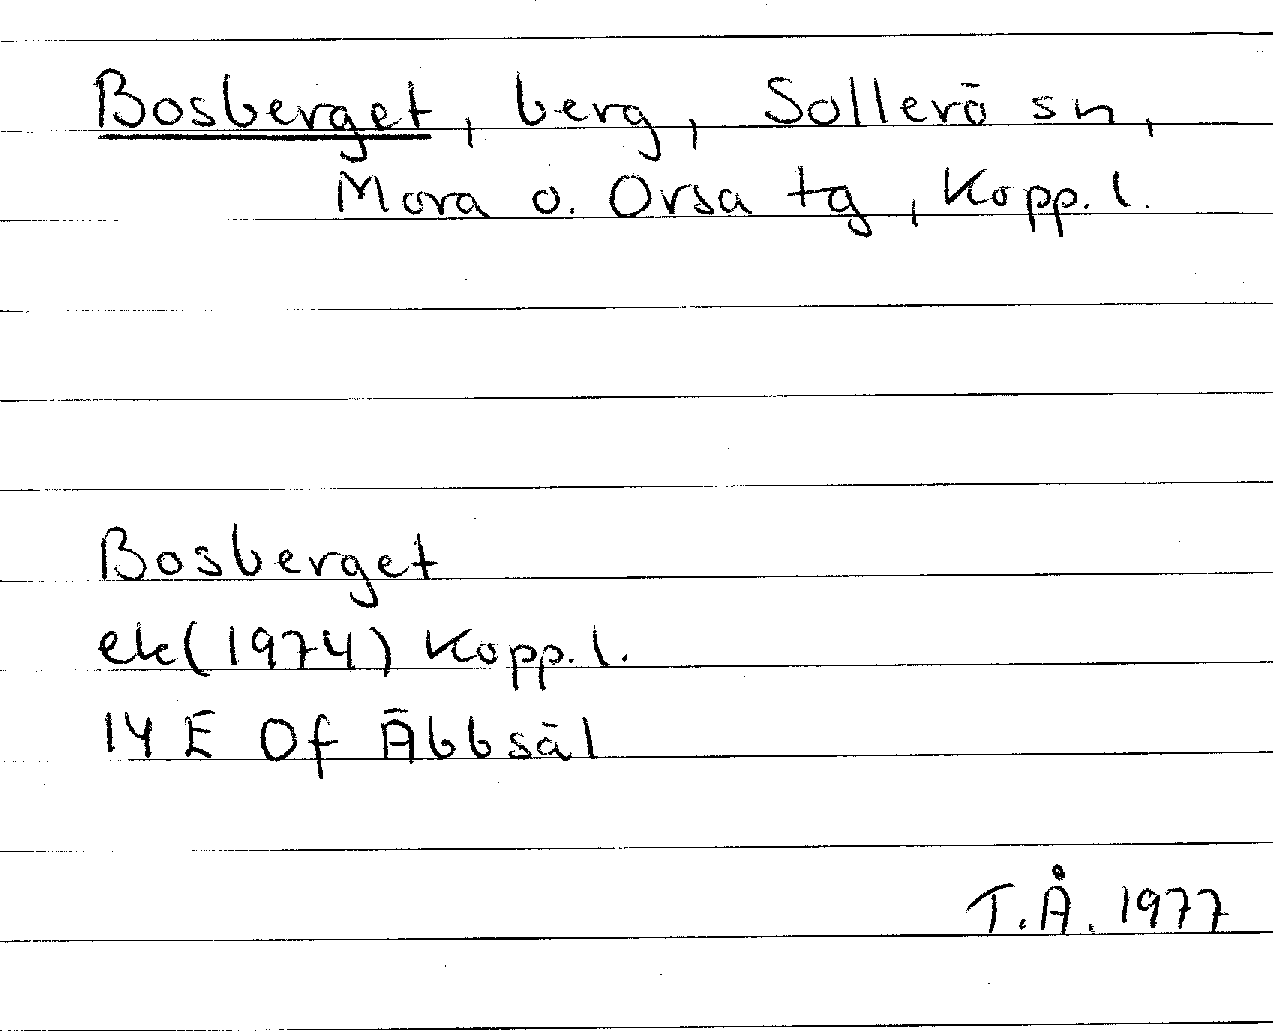 Bosberget, berg, Sollerö sn,
Mora o. Orsa tg, Kopp. l.
Bosberget
ek(1974) Kopp. l.
14 E 0f Äbbsäl
T.Å. 1977